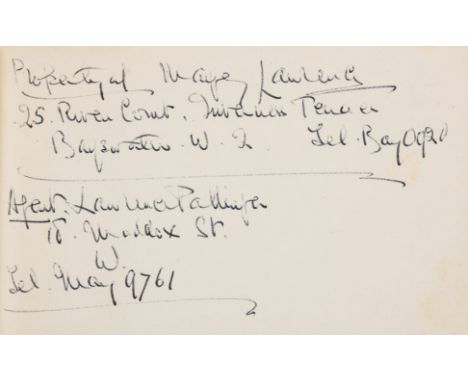 Property of Marge Lawrence
25. River Court. Inverness Terrace
Bayswater. W. 2. Tel. Bay 0920
Agent: Laurence Pollinger
18. Maddox St.
W.
Tel. May 9761